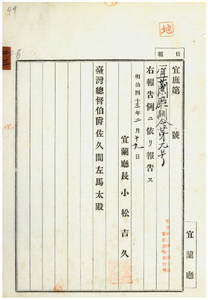 地
宜庶第 號
宜蘭廳訓令第九号
右報告例ニ依リ報告ス
明治四十三年二月十九日
宜蘭廳長 小松吉久
臺灣總督伯爵佐久間左馬太殿
宜蘭廳